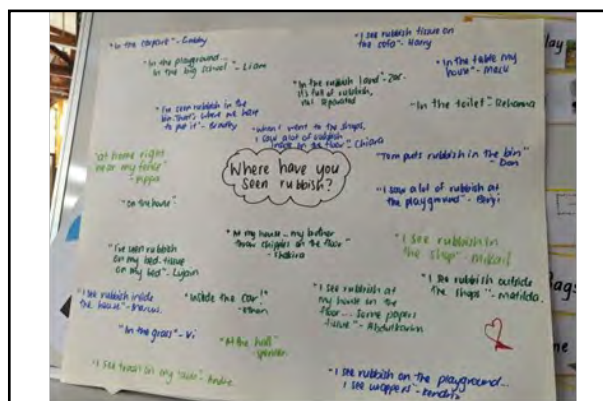 "In the carpark" -
"In the playground...
in the big school" - Liam
"I see rubbish tissue on
the sofa" - Harry
"In the table my
house" - Mack
"In the rubbish land" - Zac.
it's full of rubbish,
not separated
"In the toilet" - Rehanna
"I've seen rubbish in the
bin. That's where we have
to put it" - Bradley
"When I went to the shops,
I saw a lot of rubbish
inside on the floor" - Chiara
"Tom puts rubbish in the bin"
- Dan
"at home right
near my fence"
- Pippa
Where have you
seen rubbish?
"I saw a lot of rubbish at
the playground" - Benji
"on the house"
"At my house... my brother
throw chippies on the floor"
- Shakira
"I see rubbish in
the shop" - Mikail
"I've seen rubbish
on my bed. tissue
on my bed" - Lujain
"I see rubbish outside
the shops" - Matilda.
"I see rubbish inside
the house" - Marcus.
"Inside the car!"
- Ethan
"I see rubbish at
my house on the
floor... some papers
tissue" - Abdulkarim
"In the grass" - Vi
"At the hall"
- Spencer
"I see trash in my" - Andre
"I see rubbish on the playground...
I see wrappers" - Kendrix
lay
ags
me